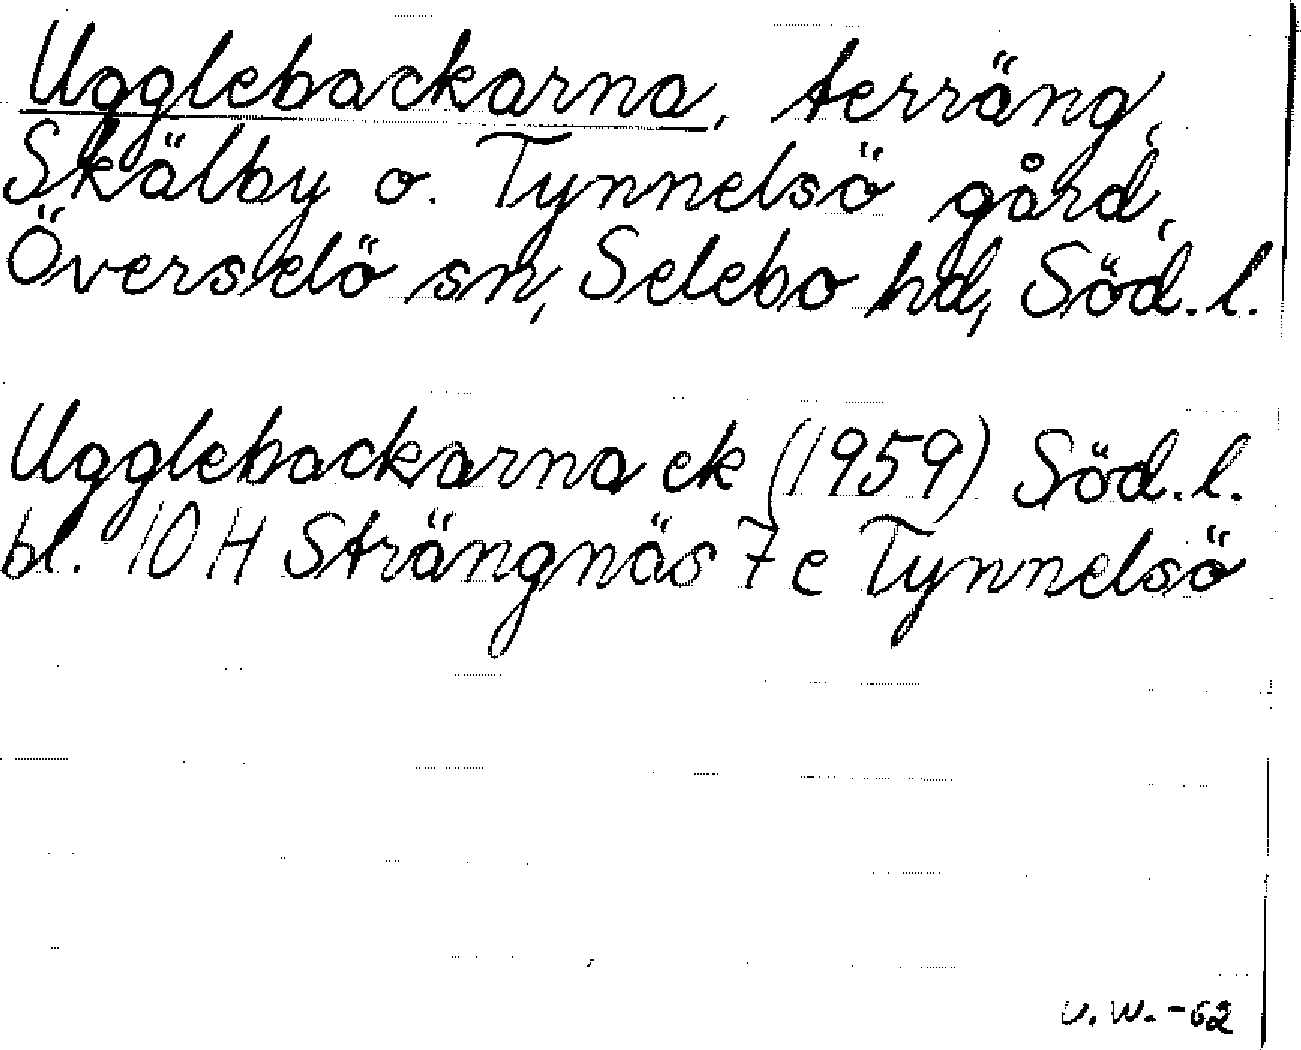 Ugglebackarna, terräng,
Skälby o. Tynnelsö gård,
Överselö sn, Selebo hd, Söd. l.
Ugglebackarna ek (1959) Söd. l.
bl. 10 H Strängnäs 7 e Tynnelsö
U. W. -62